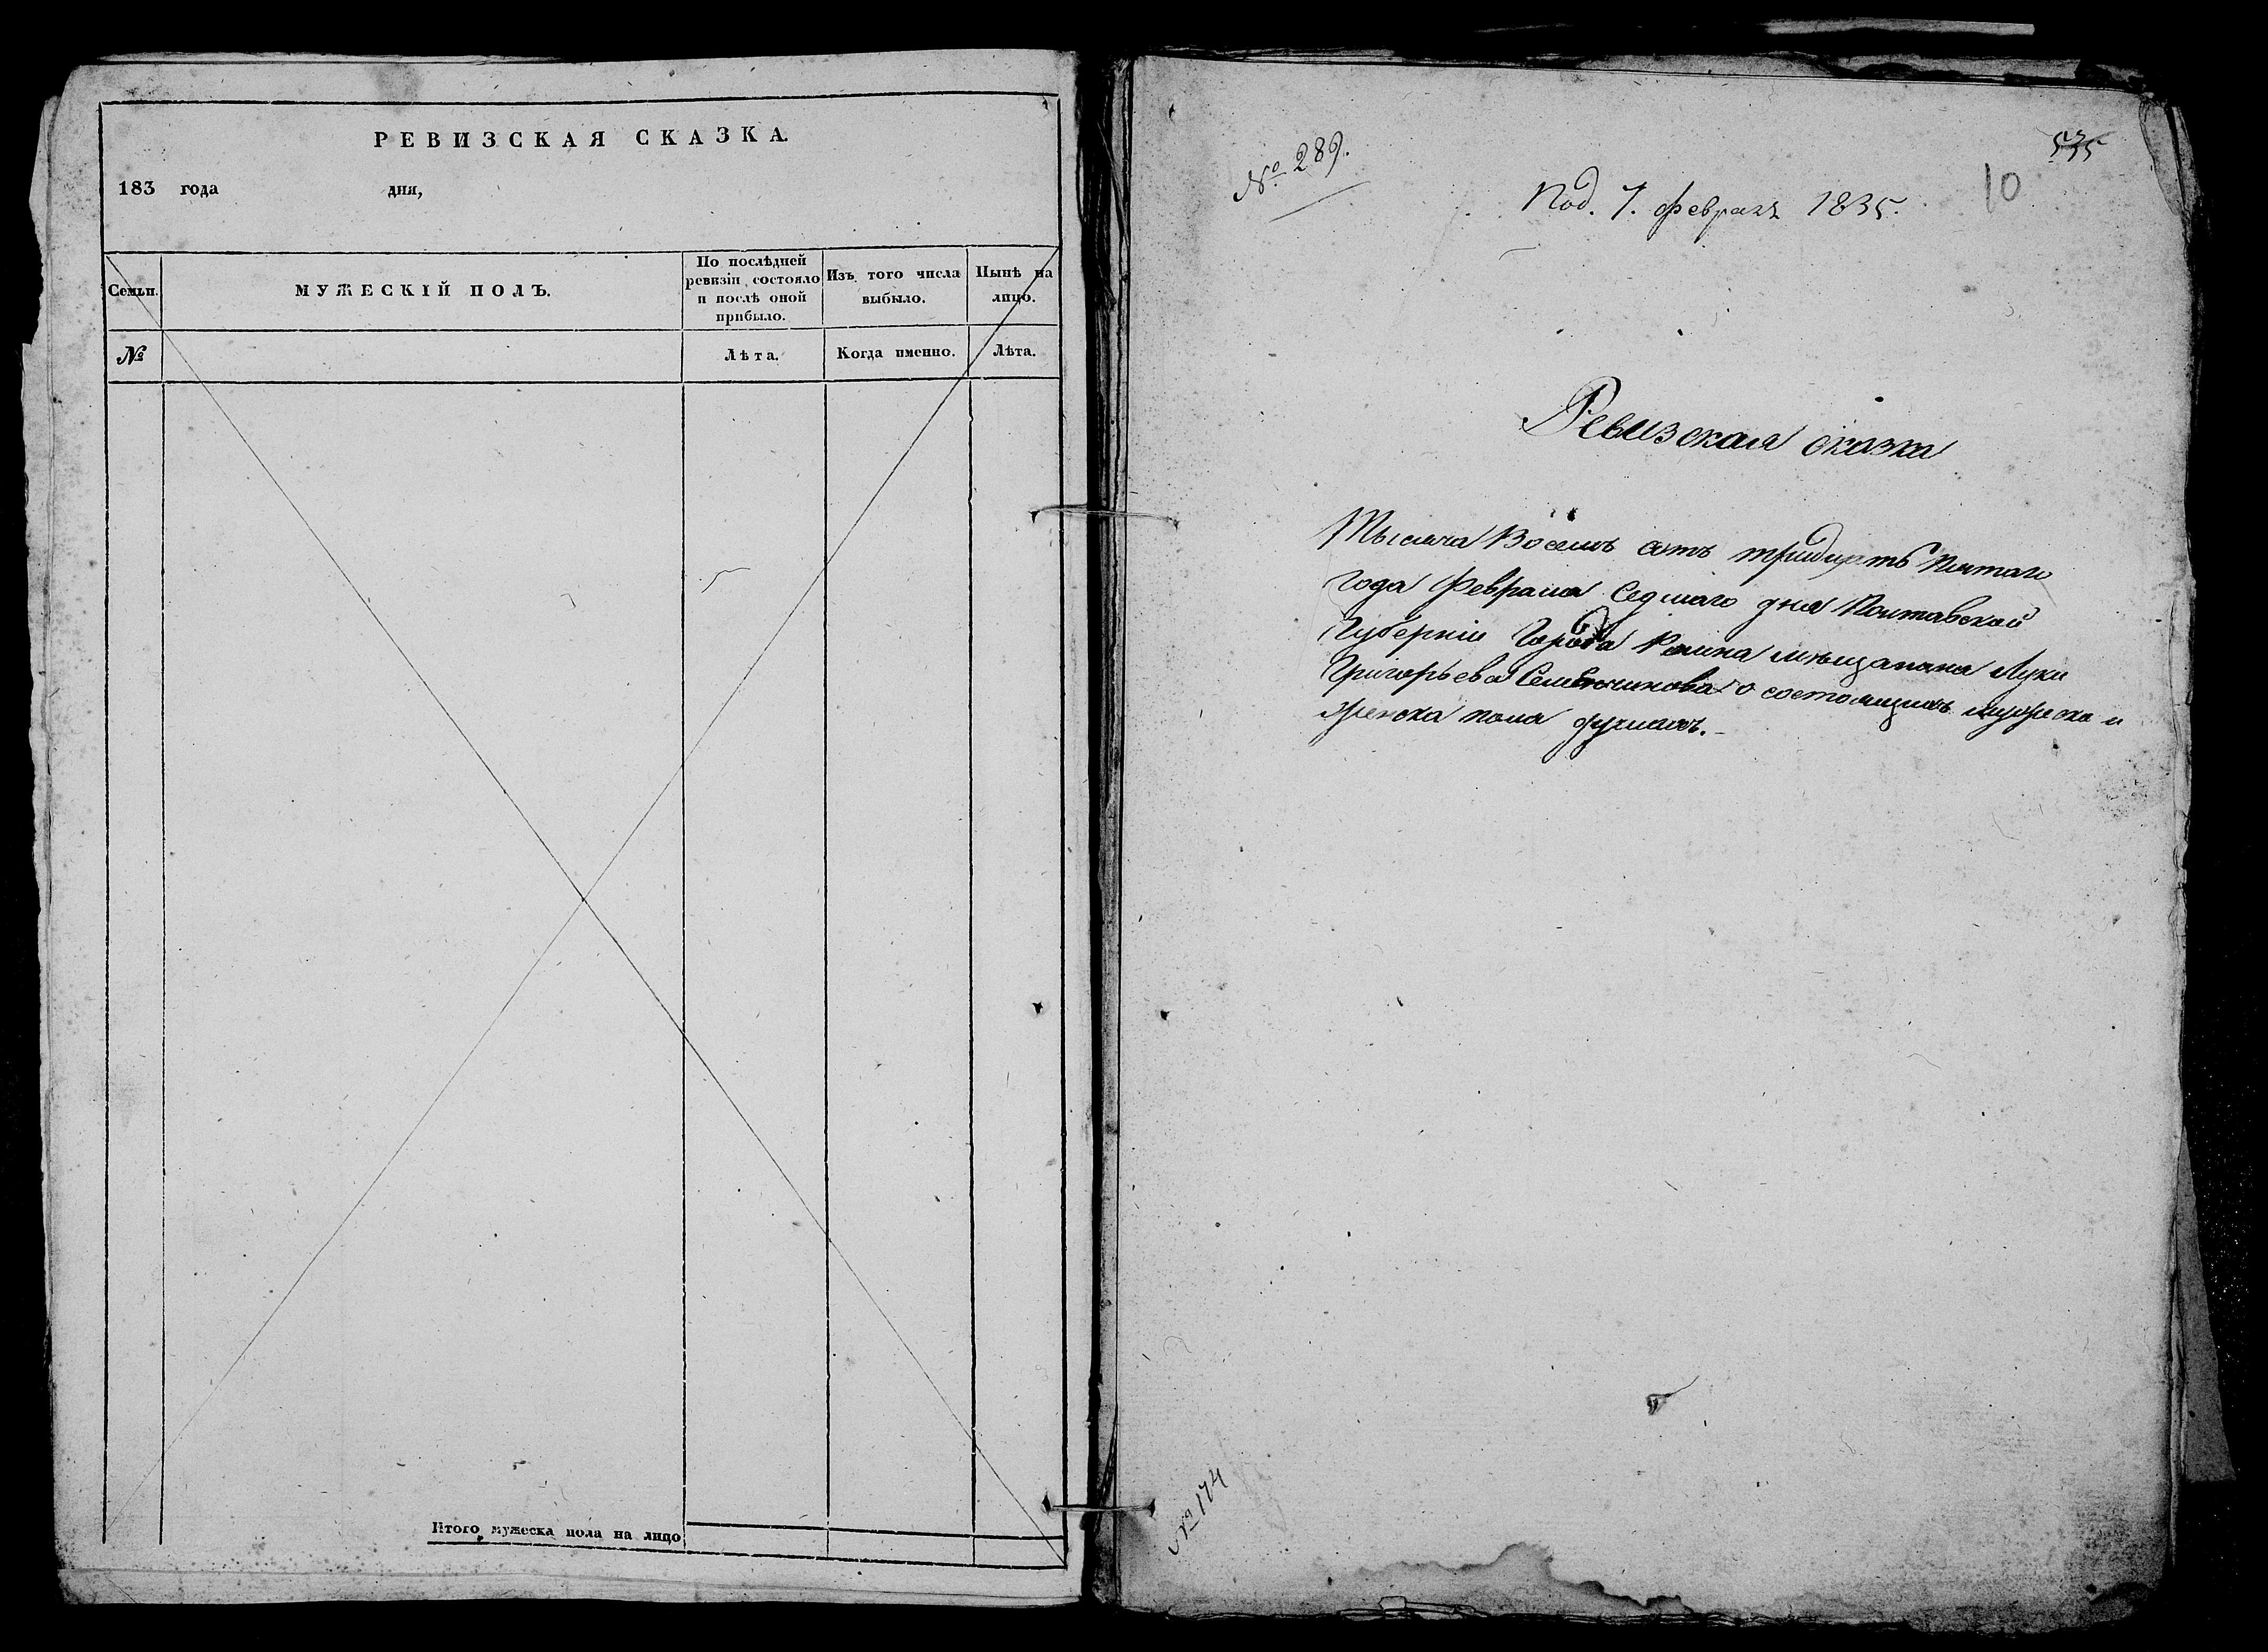 РЕВИЗСКАЯ СКАЗКА.
183 года дня,
Семьи.
МУЖЕСКІЙ ПОЛЪ.
По послѣдней
ревизіи состояло
и послѣ оной
прибыло.
Изъ того числа
выбыло.
Нынѣ на
лицо.
№
Лѣта.
Когда именно.
Лѣта.
Итого мужеска пола на лицо
№ 289.
535
10
Под. 7. февраля 1835.
Ревизская сказка
Тысяча Восемъ сотъ тридцать Пятаго
Года Февраля Седмаго дня Полтавской
Губерніи Города Ромна мѣщанина Луки
Григорьева о состоящихъ мужеска и
женска пола душахъ.
№ 174